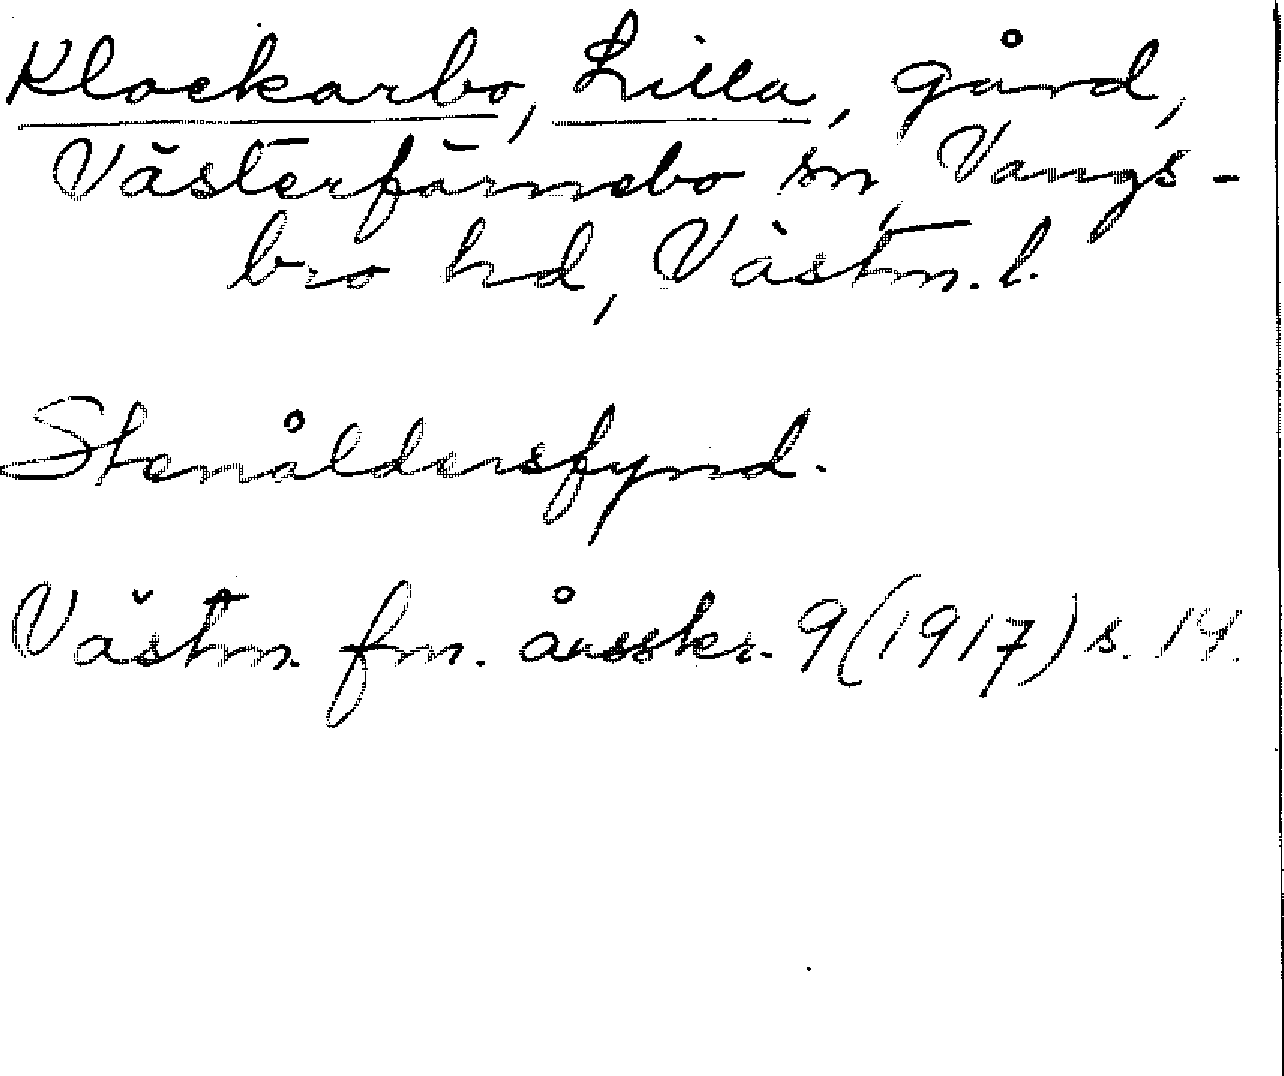 Klockarbo, Lilla, gård,
Västerfärnebo sn, Vangs-
bro hd, Västm. l.
Stenåldersfynd.
Västm. fm. årsskr. 9 (1917) s. 14.